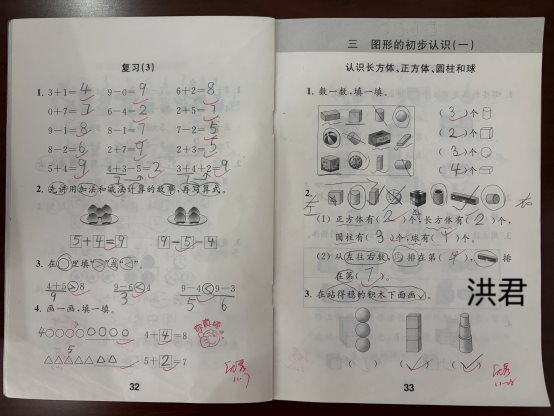 复习(3)
1. 3+1=4 9-0=9 6+2=8
0+7=7 6-4=2 2+5=7
9-1=8 8-1=7 7-2=5
8-2=6 2+7=9 2+3=5
5+4=9 4+3-5=2 3+4+2=9
2. 先讲用加法和减法计算的故事,再写算式。
5+4=9 9-5=4
3. 在○里填“>”或“<”。
4+5>8 9-6<4 9-4<9-3
9 3 5 6
4. 画一画,填一填。
4 4+4=8
5 5+2=7
32
三 图形的初步认识(一)
认识长方体、正方体、圆柱和球
1. 数一数,填一填。
(3)个
(2)个
(3)个
(4)个
2.
左 右
(1) 正方体有(2)个,长方体有(2)个,
圆柱有(3)个,球有(1)个。
(2) 从左往右数, 排在第(4), 排
在第(7)。
3. 在站得稳的积木下面画✓。
洪君
( ) (✓) (✓)
33